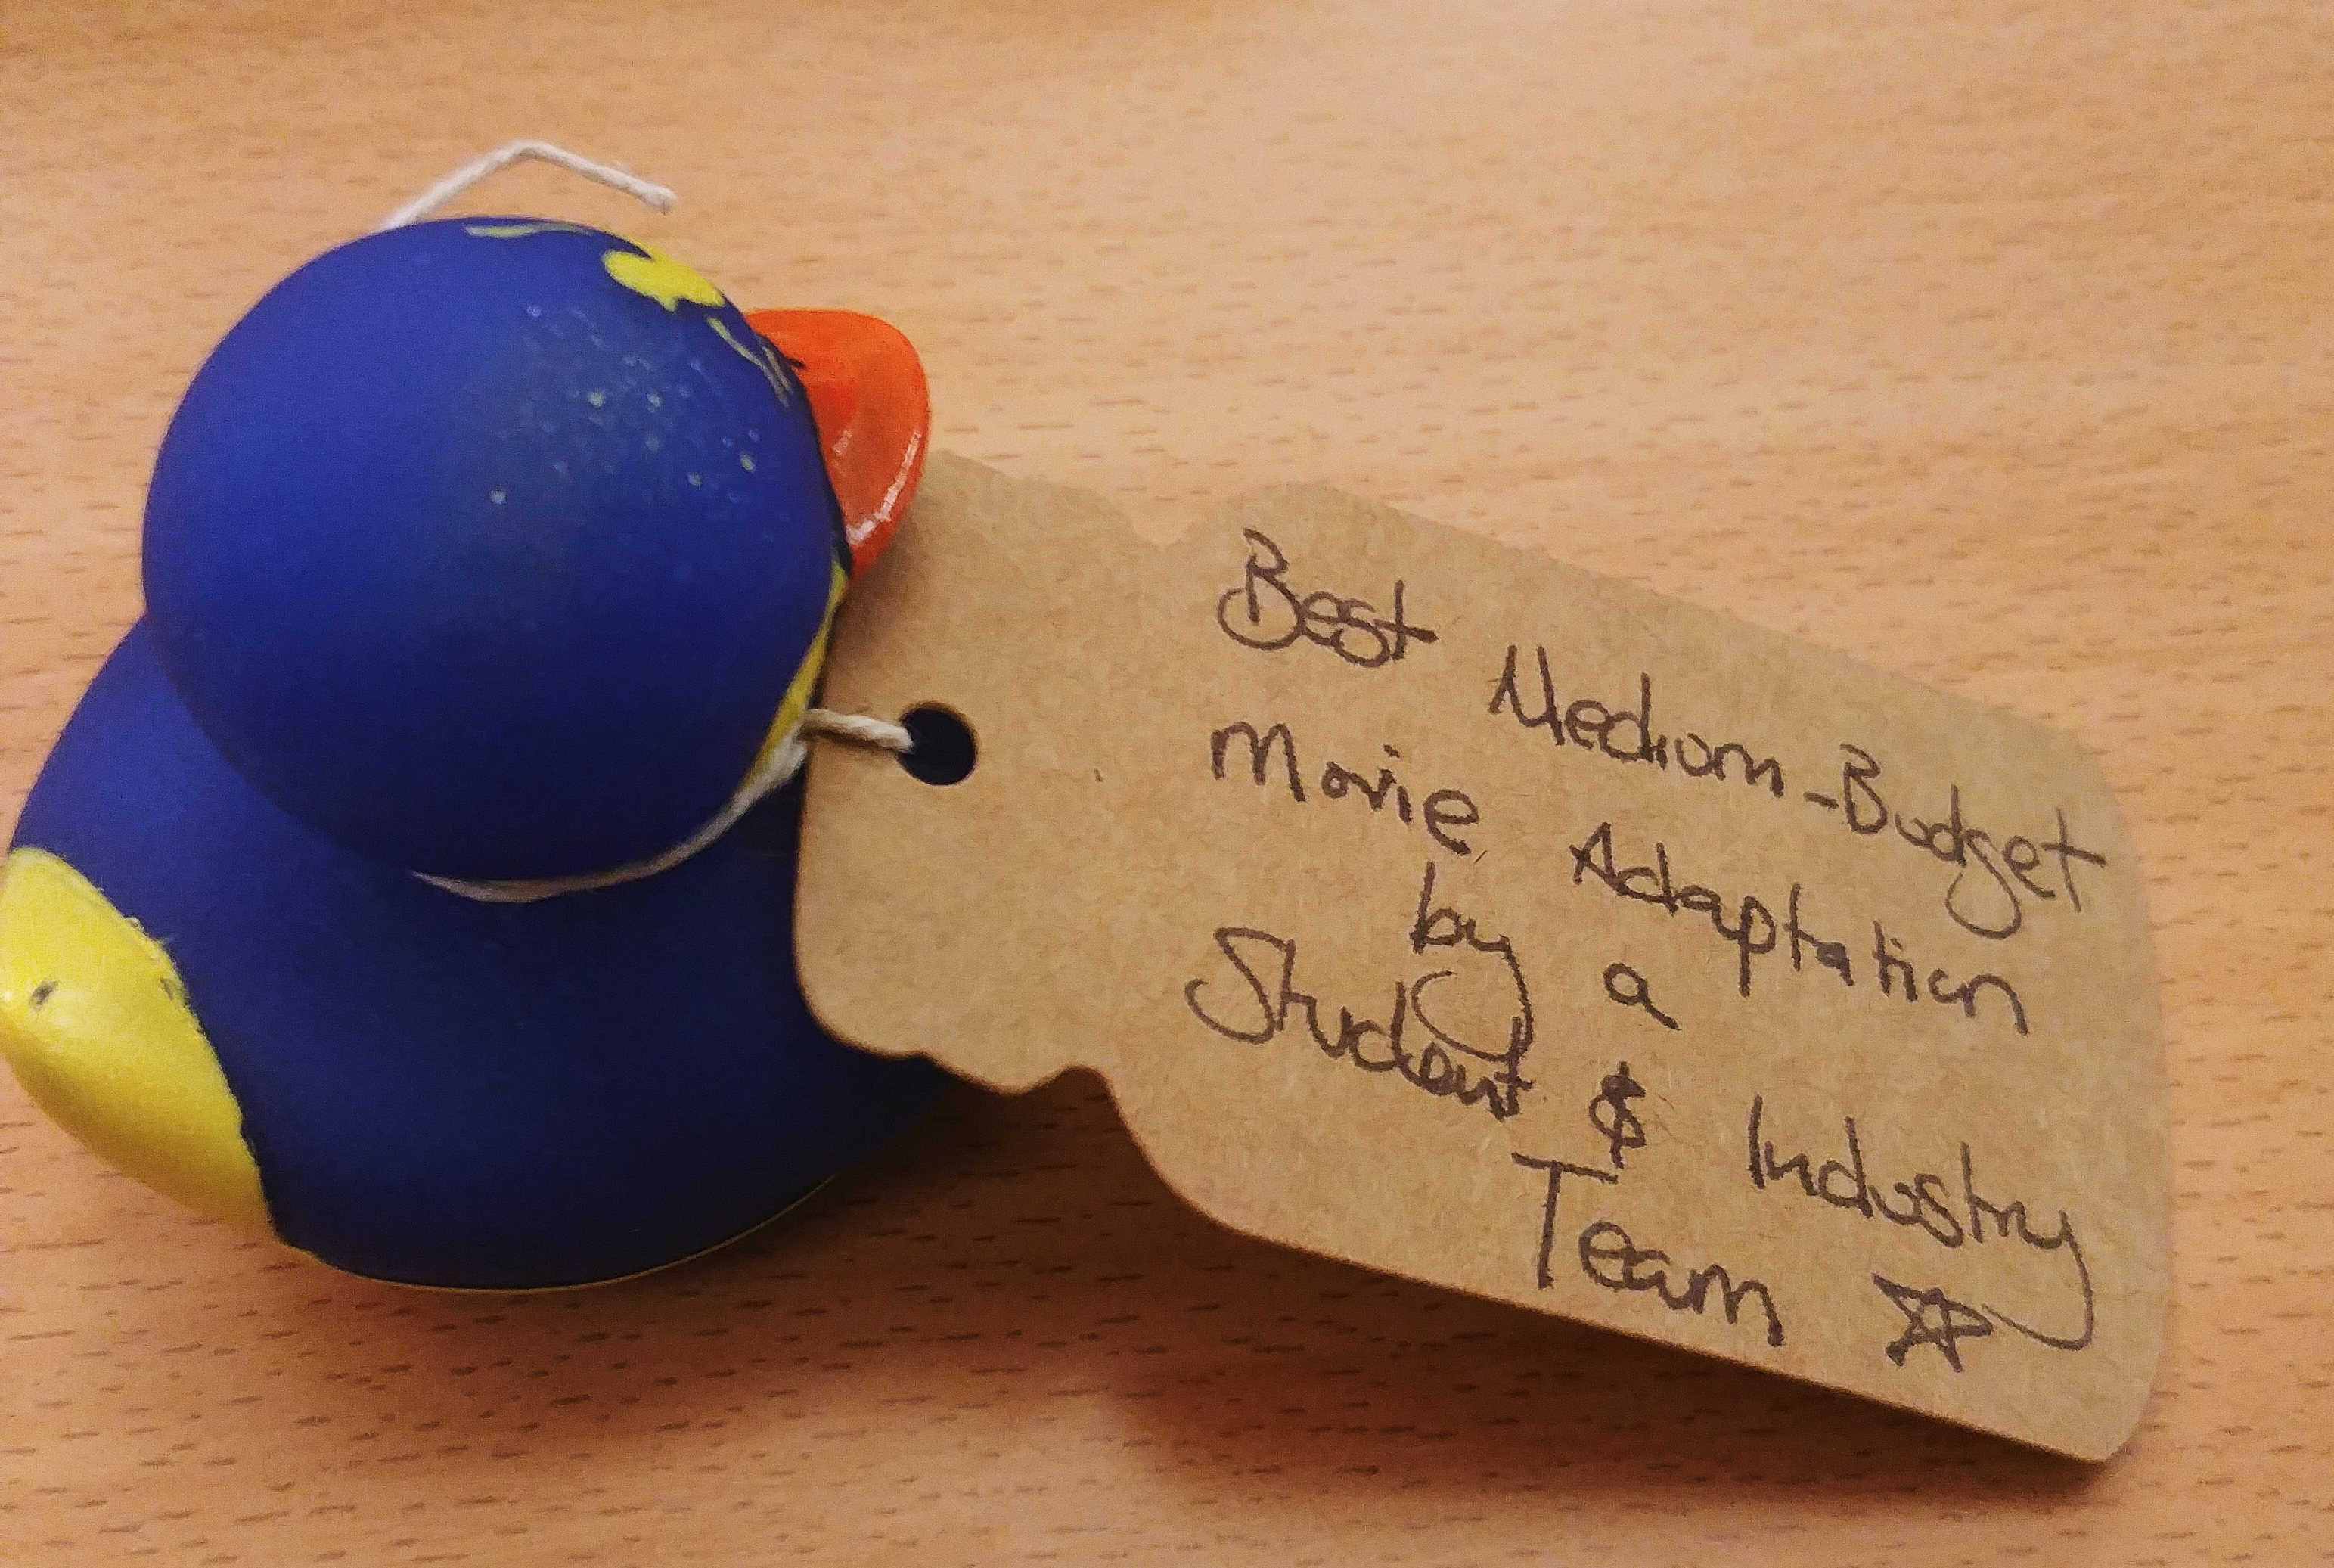 Best Medium-Budget
Movie Adaptation
by a
Student & Industry
Team